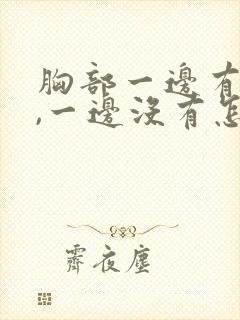 胸部一邊有
,一邊沒有怎
霽夜塵